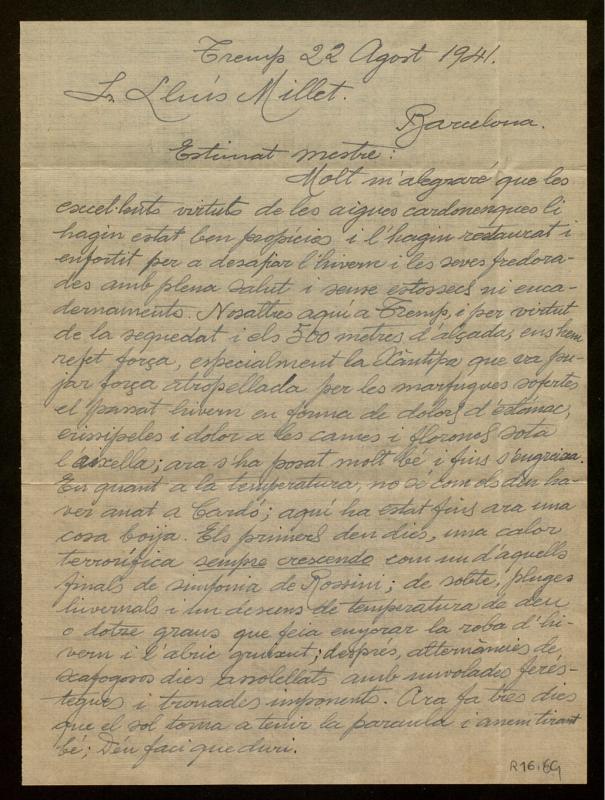 Tremp 22 Agost 1941.
Sr Lluís Millet.
Barcelona.
Estimat mestre:
Molt m'alegraré que les
excel·lents virtuts de les aigues cardonenques li
hagin estat ben propícies i l'hagin restaurat i
enfortit per a desafiar l'hivern i les seves fredora-
des amb plena salut i sense estossecs ni enca-
dernaments. Nosaltres aquí a Tremp, i per virtut
de la sequedat i els 500 metres d'alçada, ens hem
refet força, especialment la Xàntipa que va pu-
jar força atropellada per les marfugues sofertes
el passat hivern en forma de dolors d'estómac,
erissipeles i dolor a les cames i florones sota
l'aixella; ara s'ha posat molt bé i fins s'engreixa.
En quant a la temperatura, no sé com els deu ha-
ver anat a Cardó; aquí ha estat fins ara una
cosa boija. Els primers deu dies, una calor
terrorífica sempre crescendo com un d'aquells
finals de simfonia de Rossini; de sobte, pluges
hivernals i un descens de temperatura de deu
o dotze graus que feia enyorar la roba d'hi-
vern i l'abric gruixut; després, alternàncies de
xafogosos dies assolellats amb nuvolades ferés-
tegues i tronades imponents. Ara fa tres dies
que el sol torna a tenir la paraula i anem tirant
bé; Déu faci que duri.
R16.69